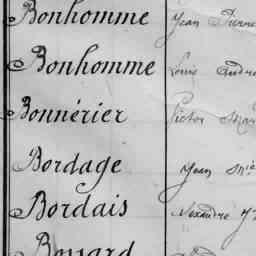 Bonhomme Jean Pierre
Bonhomme Louis André
Bonnérier Victor
Bordage Jean Mie
Bordais Alexandre
Bouard